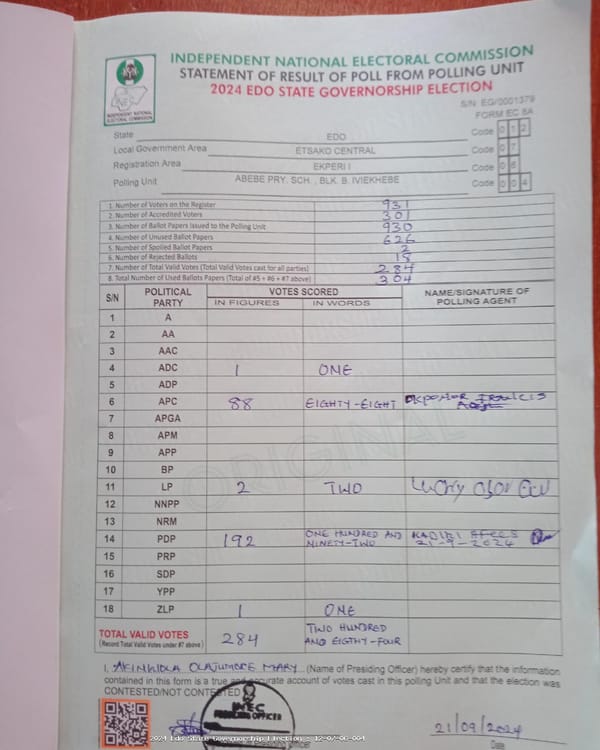 INDEPENDENT NATIONAL ELECTORAL COMMISSION
STATEMENT OF RESULT OF POLL FROM POLLING UNIT
2024 EDO STATE GOVERNORSHIP ELECTION
INDEPENDENT NATIONAL ELECTORAL COMMISSION
S/N EG/0001379
FORM EC 8A
State EDO Code 0 1 2
Local Government Area ETSAKO CENTRAL Code 0 7
Registration Area EKPERI I Code 0 6
Polling Unit ABEBE PRY. SCH., BLK. B. IVIEKHEBE Code 0 0 4
1. Number of Voters on the Register 931
2. Number of Accredited Voters 301
3. Number of Ballot Papers Issued to the Polling Unit 930
4. Number of Unused Ballot Papers 626
5. Number of Spoiled Ballot Papers 2
6. Number of Rejected Ballots 18
7. Number of Total Valid Votes (Total Valid Votes cast for all parties) 284
8. Total Number of Used Ballots Papers (Total of #5 + #6 + #7 above) 304
S/N POLITICAL PARTY VOTES SCORED NAME/SIGNATURE OF POLLING AGENT
IN FIGURES IN WORDS
1 A
2 AA
3 AAC
4 ADC 1 ONE
5 ADP
6 APC 88 EIGHTY-EIGHT
7 APGA
8 APM
9 APP
10 BP
11 LP 2 TWO Lucky
12 NNPP
13 NRM
14 PDP 192 ONE HUNDRED AND NINETY-TWO KADIRI 21-9-2024
15 PRP
16 SDP
17 YPP
18 ZLP 1 ONE
TOTAL VALID VOTES 284 TWO HUNDRED AND EIGTHY-FOUR
(Record Total Valid Votes under #7 above)
ORIGINAL
I, AKINKIOLA OLAJUMOKE MARY (Name of Presiding Officer) hereby certify that the information
contained in this form is a true and accurate account of votes cast in this polling Unit and that the election was
CONTESTED/NOT CONTESTED
INEC
PRESIDING OFFICER
21/09/2024
Date
2024 Edo State Governorship Election - 12-07-06-004